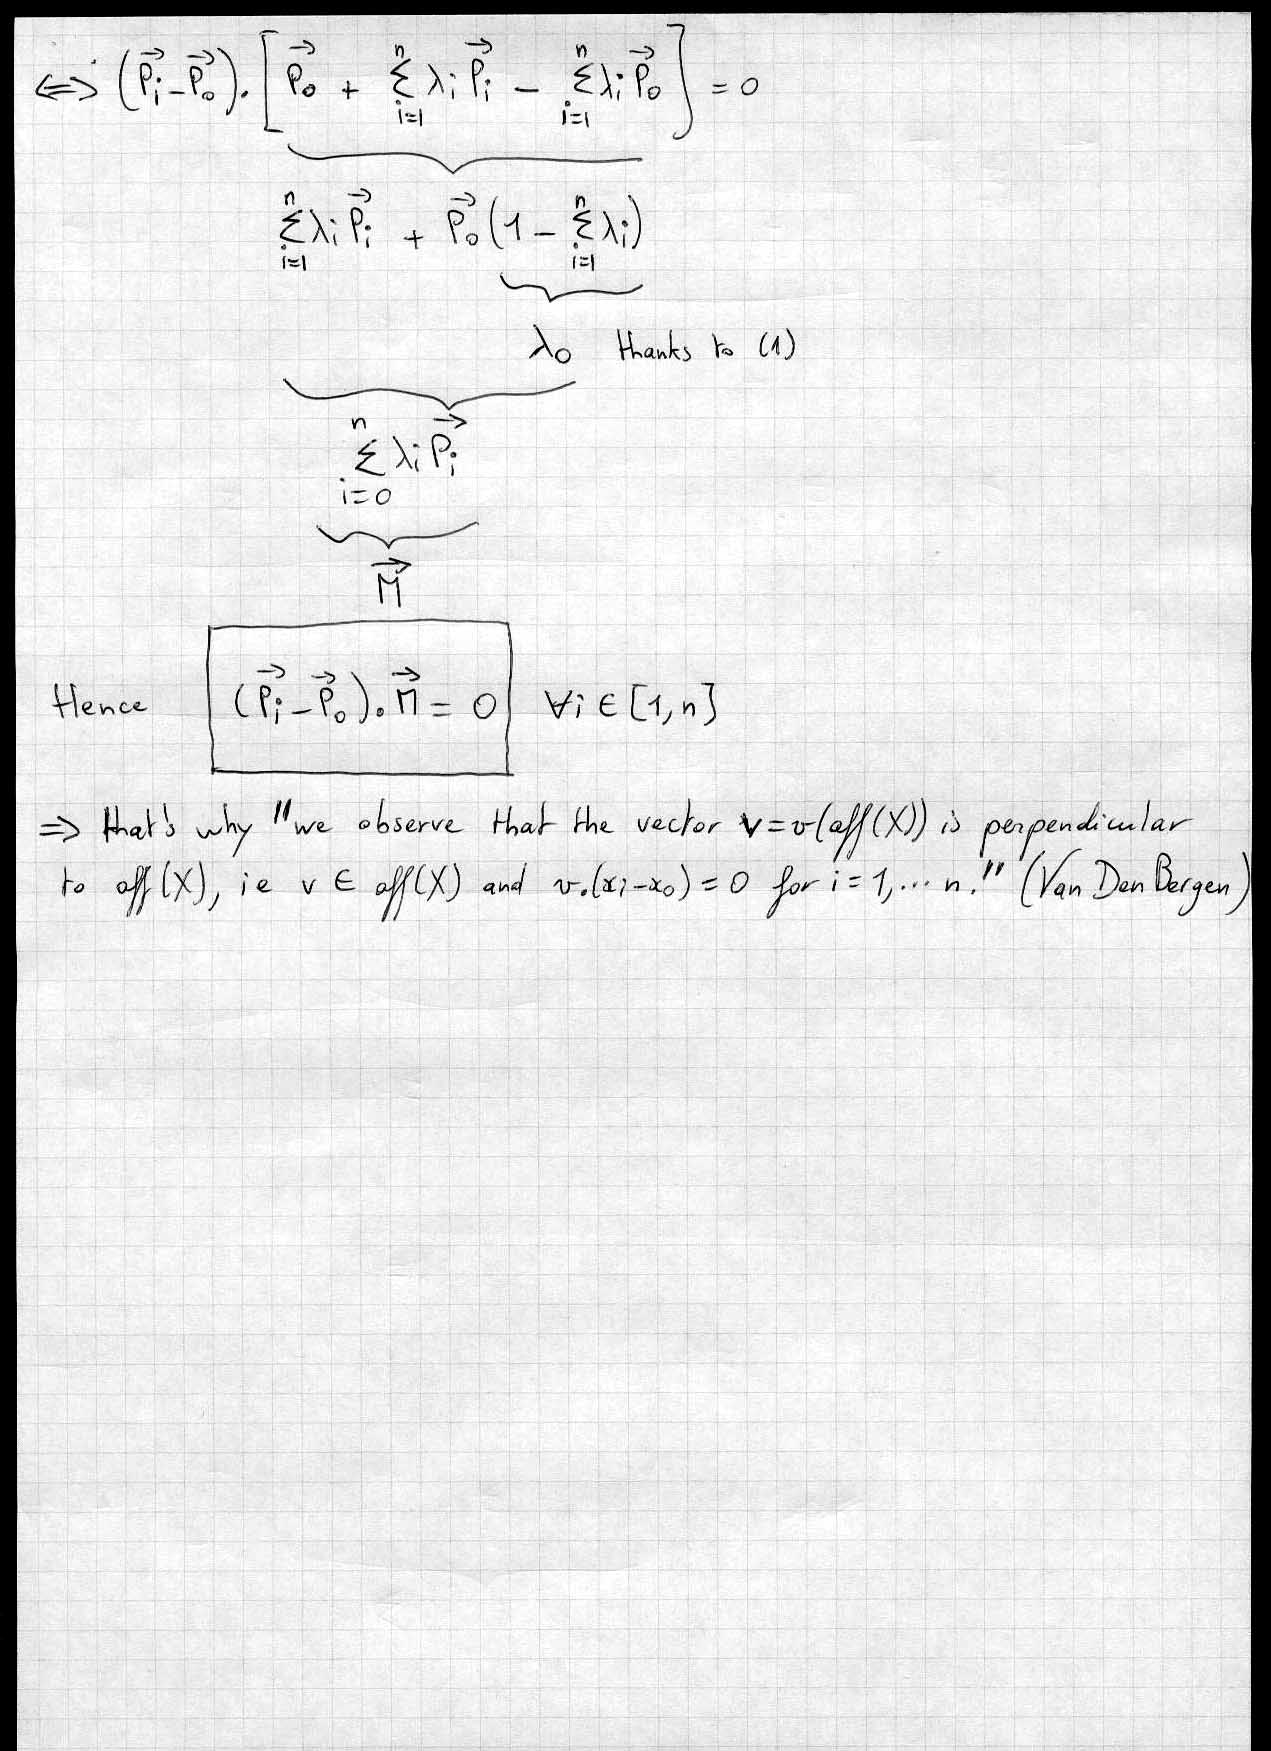 ⟺ (P⃗i − P⃗0) . [ P⃗0 + Σ_{i=1}^{n} λi P⃗i − Σ_{i=1}^{n} λi P⃗0 ] = 0
Σ_{i=1}^{n} λi P⃗i + P⃗0 (1 − Σ_{i=1}^{n} λi)
λ0 thanks to (1)
Σ_{i=0}^{n} λi P⃗i
M⃗
Hence (P⃗i − P⃗0) . M⃗ = 0 ∀i ∈ [1,n]
⟹ that's why "we observe that the vector v = v(aff(X)) is perpendicular
to aff(X), ie v ∈ aff(X) and v.(xi − x0) = 0 for i = 1,... n." (Van Den Bergen)